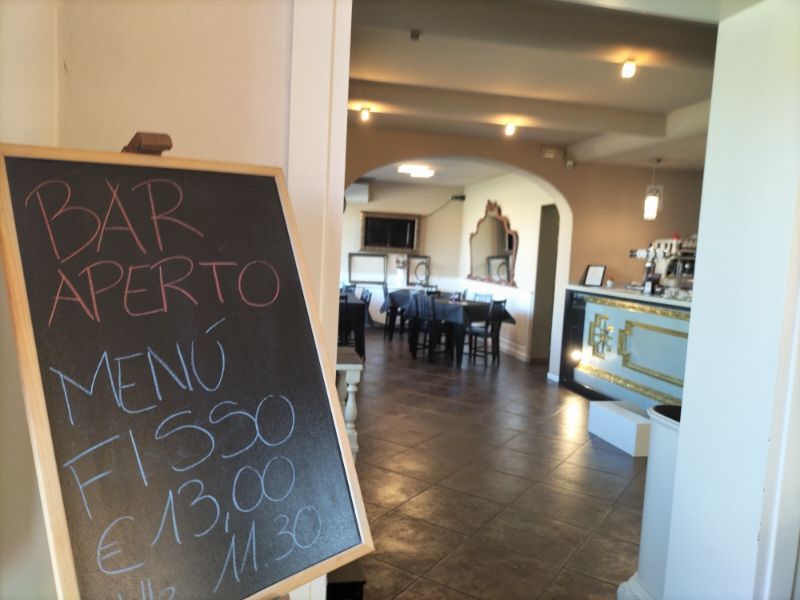 BAR
APERTO
MENÚ
FISSO
€ 13,00
11.30